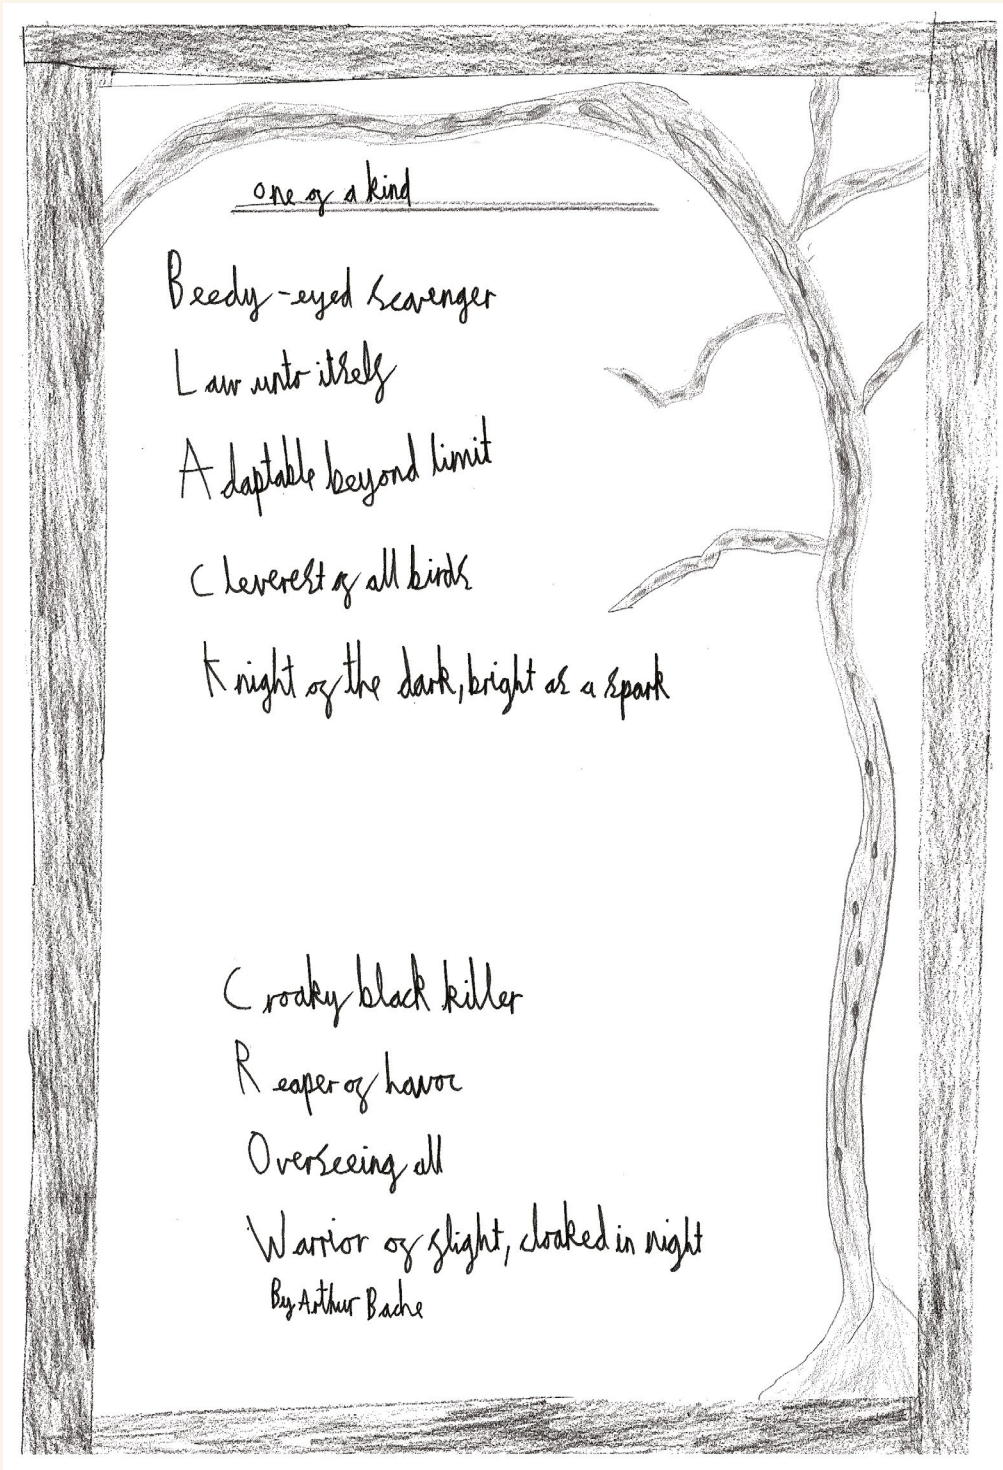 one of a kind
Beedy-eyed scavenger
Law unto itself
Adaptable beyond limit
Cleverest of all birds
Knight of the dark, bright as a spark
Croaky black killer
Reaper of havoc
Overseeing all
Warrior of flight, cloaked in night
By Arthur Bache